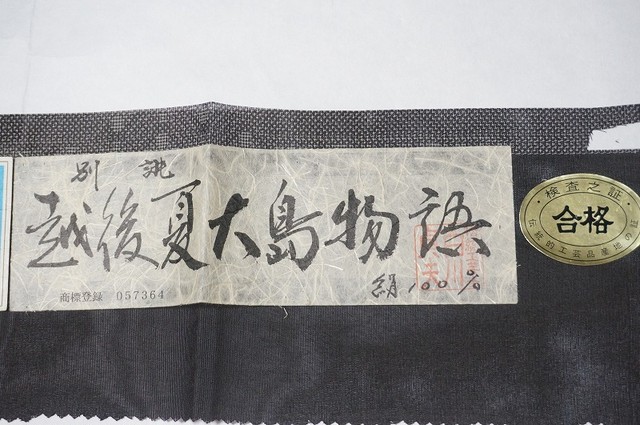 別誂
越後夏大島物語
絹100%
商標登録 057364
検査之証
合格
伝統的工芸品産地の証